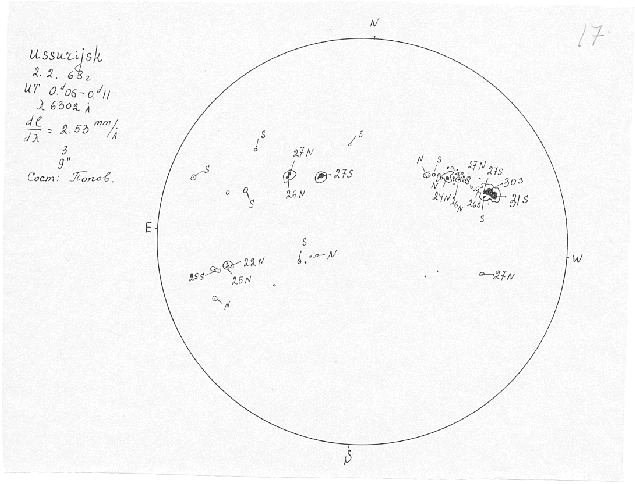 17
N
Ussurijsk
2. 2. 68г
UT 0.ᵈ06-0.ᵈ11
λ 6302 Å
dl/dλ = 2.53 mm/Å
3
9"
Сост: Попов.
S
S
27N
S
26N
27S
S
N
S
27N
21S
30S
N
24N
26S
21S
S
E
W
S
N
22N
25S
25N
27N
N
S